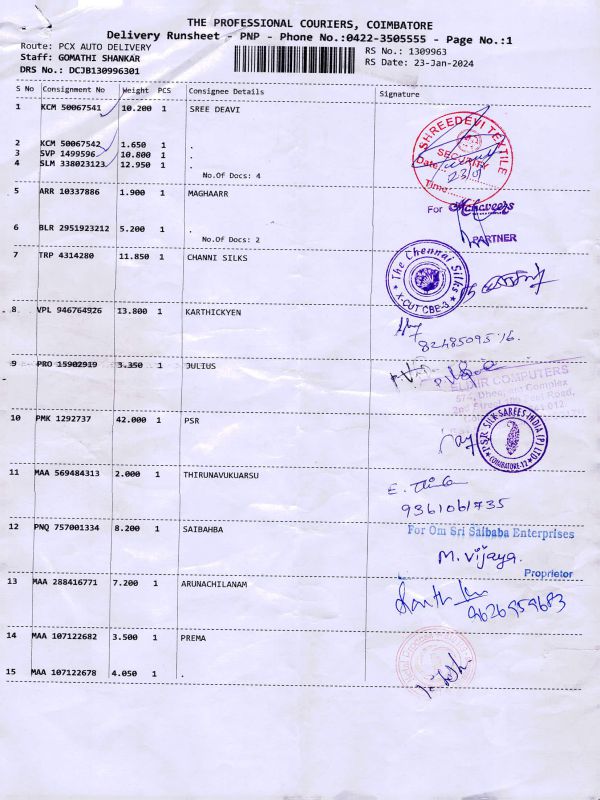 THE PROFESSIONAL COURIERS, COIMBATORE
Delivery Runsheet - PNP - Phone No.:0422-3505555 - Page No.:1
Route: PCX AUTO DELIVERY
RS No.: 1309963
Staff: GOMATHI SHANKAR
RS Date: 23-Jan-2024
DRS No.: DCJB130996301
S No Consignment No Weight PCS Consignee Details Signature
1 KCM 50067541 10.200 1 SREE DEAVI
2 KCM 50067542 1.650 1 .
3 SVP 1499596 10.800 1 .
4 SLM 338023123 12.950 1 .
No.Of Docs: 4
SHREEDEVI TEXTILE
SECURITY
Date
23/01
Time
5 ARR 10337886 1.900 1 MAGHAARR
For
6 BLR 2951923212 5.200 1 .
No.Of Docs: 2
PARTNER
7 TRP 4314280 11.850 1 CHANNI SILKS
The Chennai Silks
X-CUT CBE-3
8 VPL 946764926 13.800 1 KARTHICKYEN
8248509516.
9 PRO 15902919 3.350 1 JULIUS
ELIXIR COMPUTERS
Complex
Road,
10 PMK 1292737 42.000 1 PSR
PSR SILK SAREES INDIA (P) LTD
COIMBATORE-12
11 MAA 569484313 2.000 1 THIRUNAVUKUARSU
9361061735
12 PNQ 757001334 8.200 1 SAIBAHBA
For Om Sri Saibaba Enterprises
M. Vijaya.
Proprietor
13 MAA 288416771 7.200 1 ARUNACHILANAM
9626959683
14 MAA 107122682 3.500 1 PREMA
15 MAA 107122678 4.050 1 .